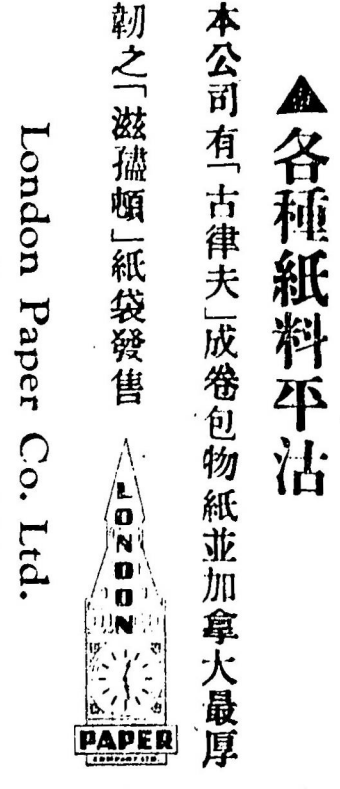 各種紙料平沽
本公司有「古律夫」成卷包物紙並加拿大最厚
韌之「滋孻頓」紙袋發售
London Paper Co. Ltd.
LONDON
PAPER
COMPANY LTD.